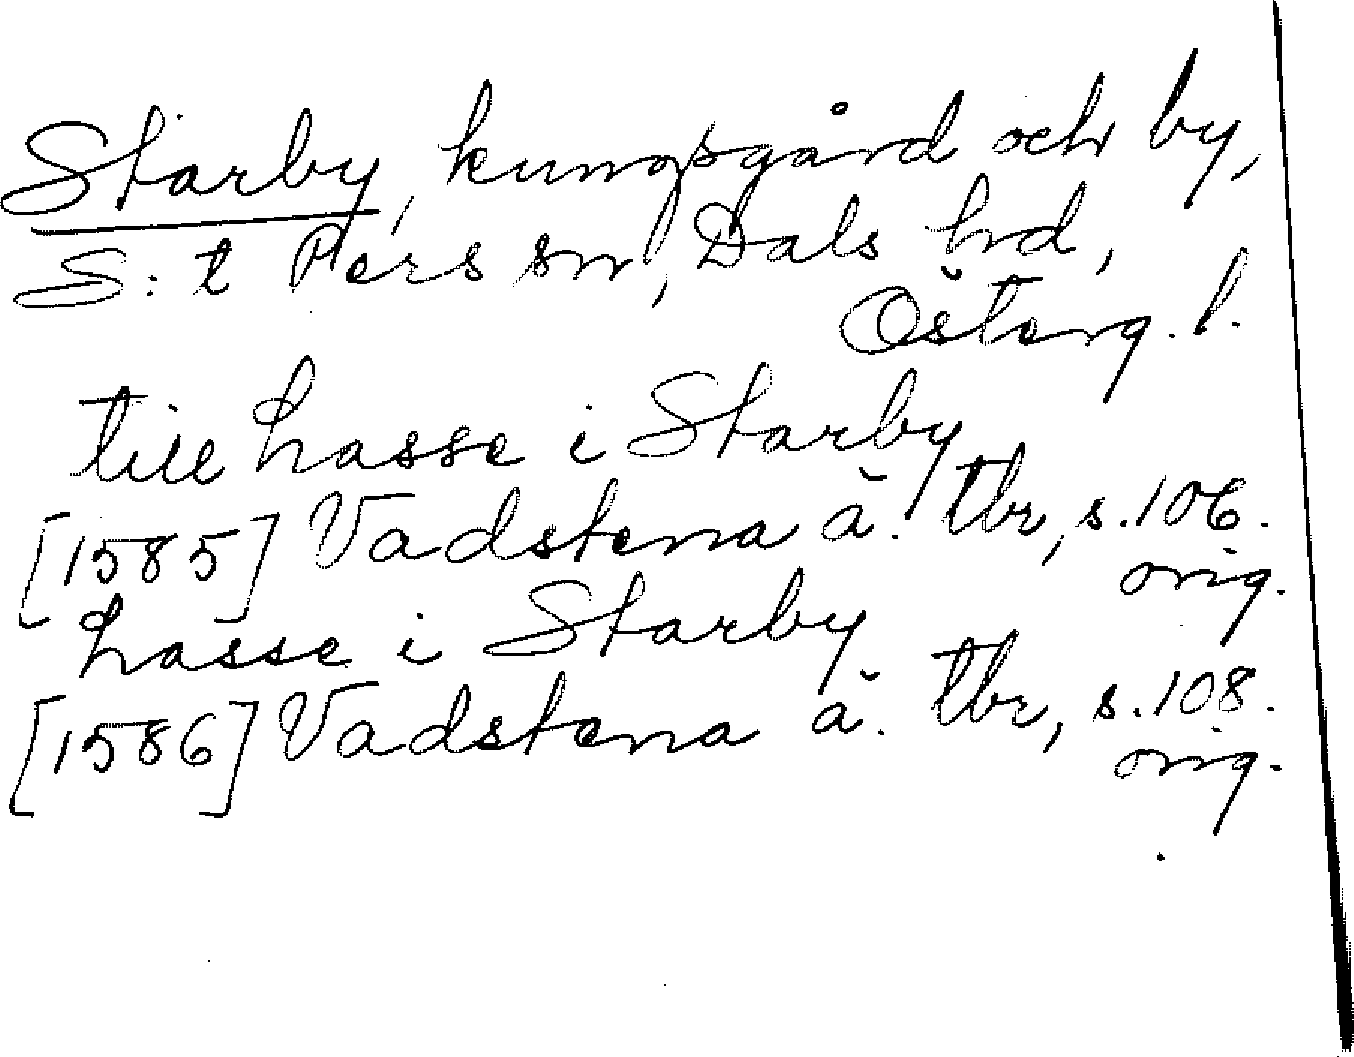 Starby, kungsgård och by,
S:t Pers sn, Dals hd,
Österg. l.
till Lasse i Starby
[1585] Vadstena ä. tbr, s. 106.
orig.
Lasse i Starby
[1586] Vadstena ä. tbr, s. 108.
orig.